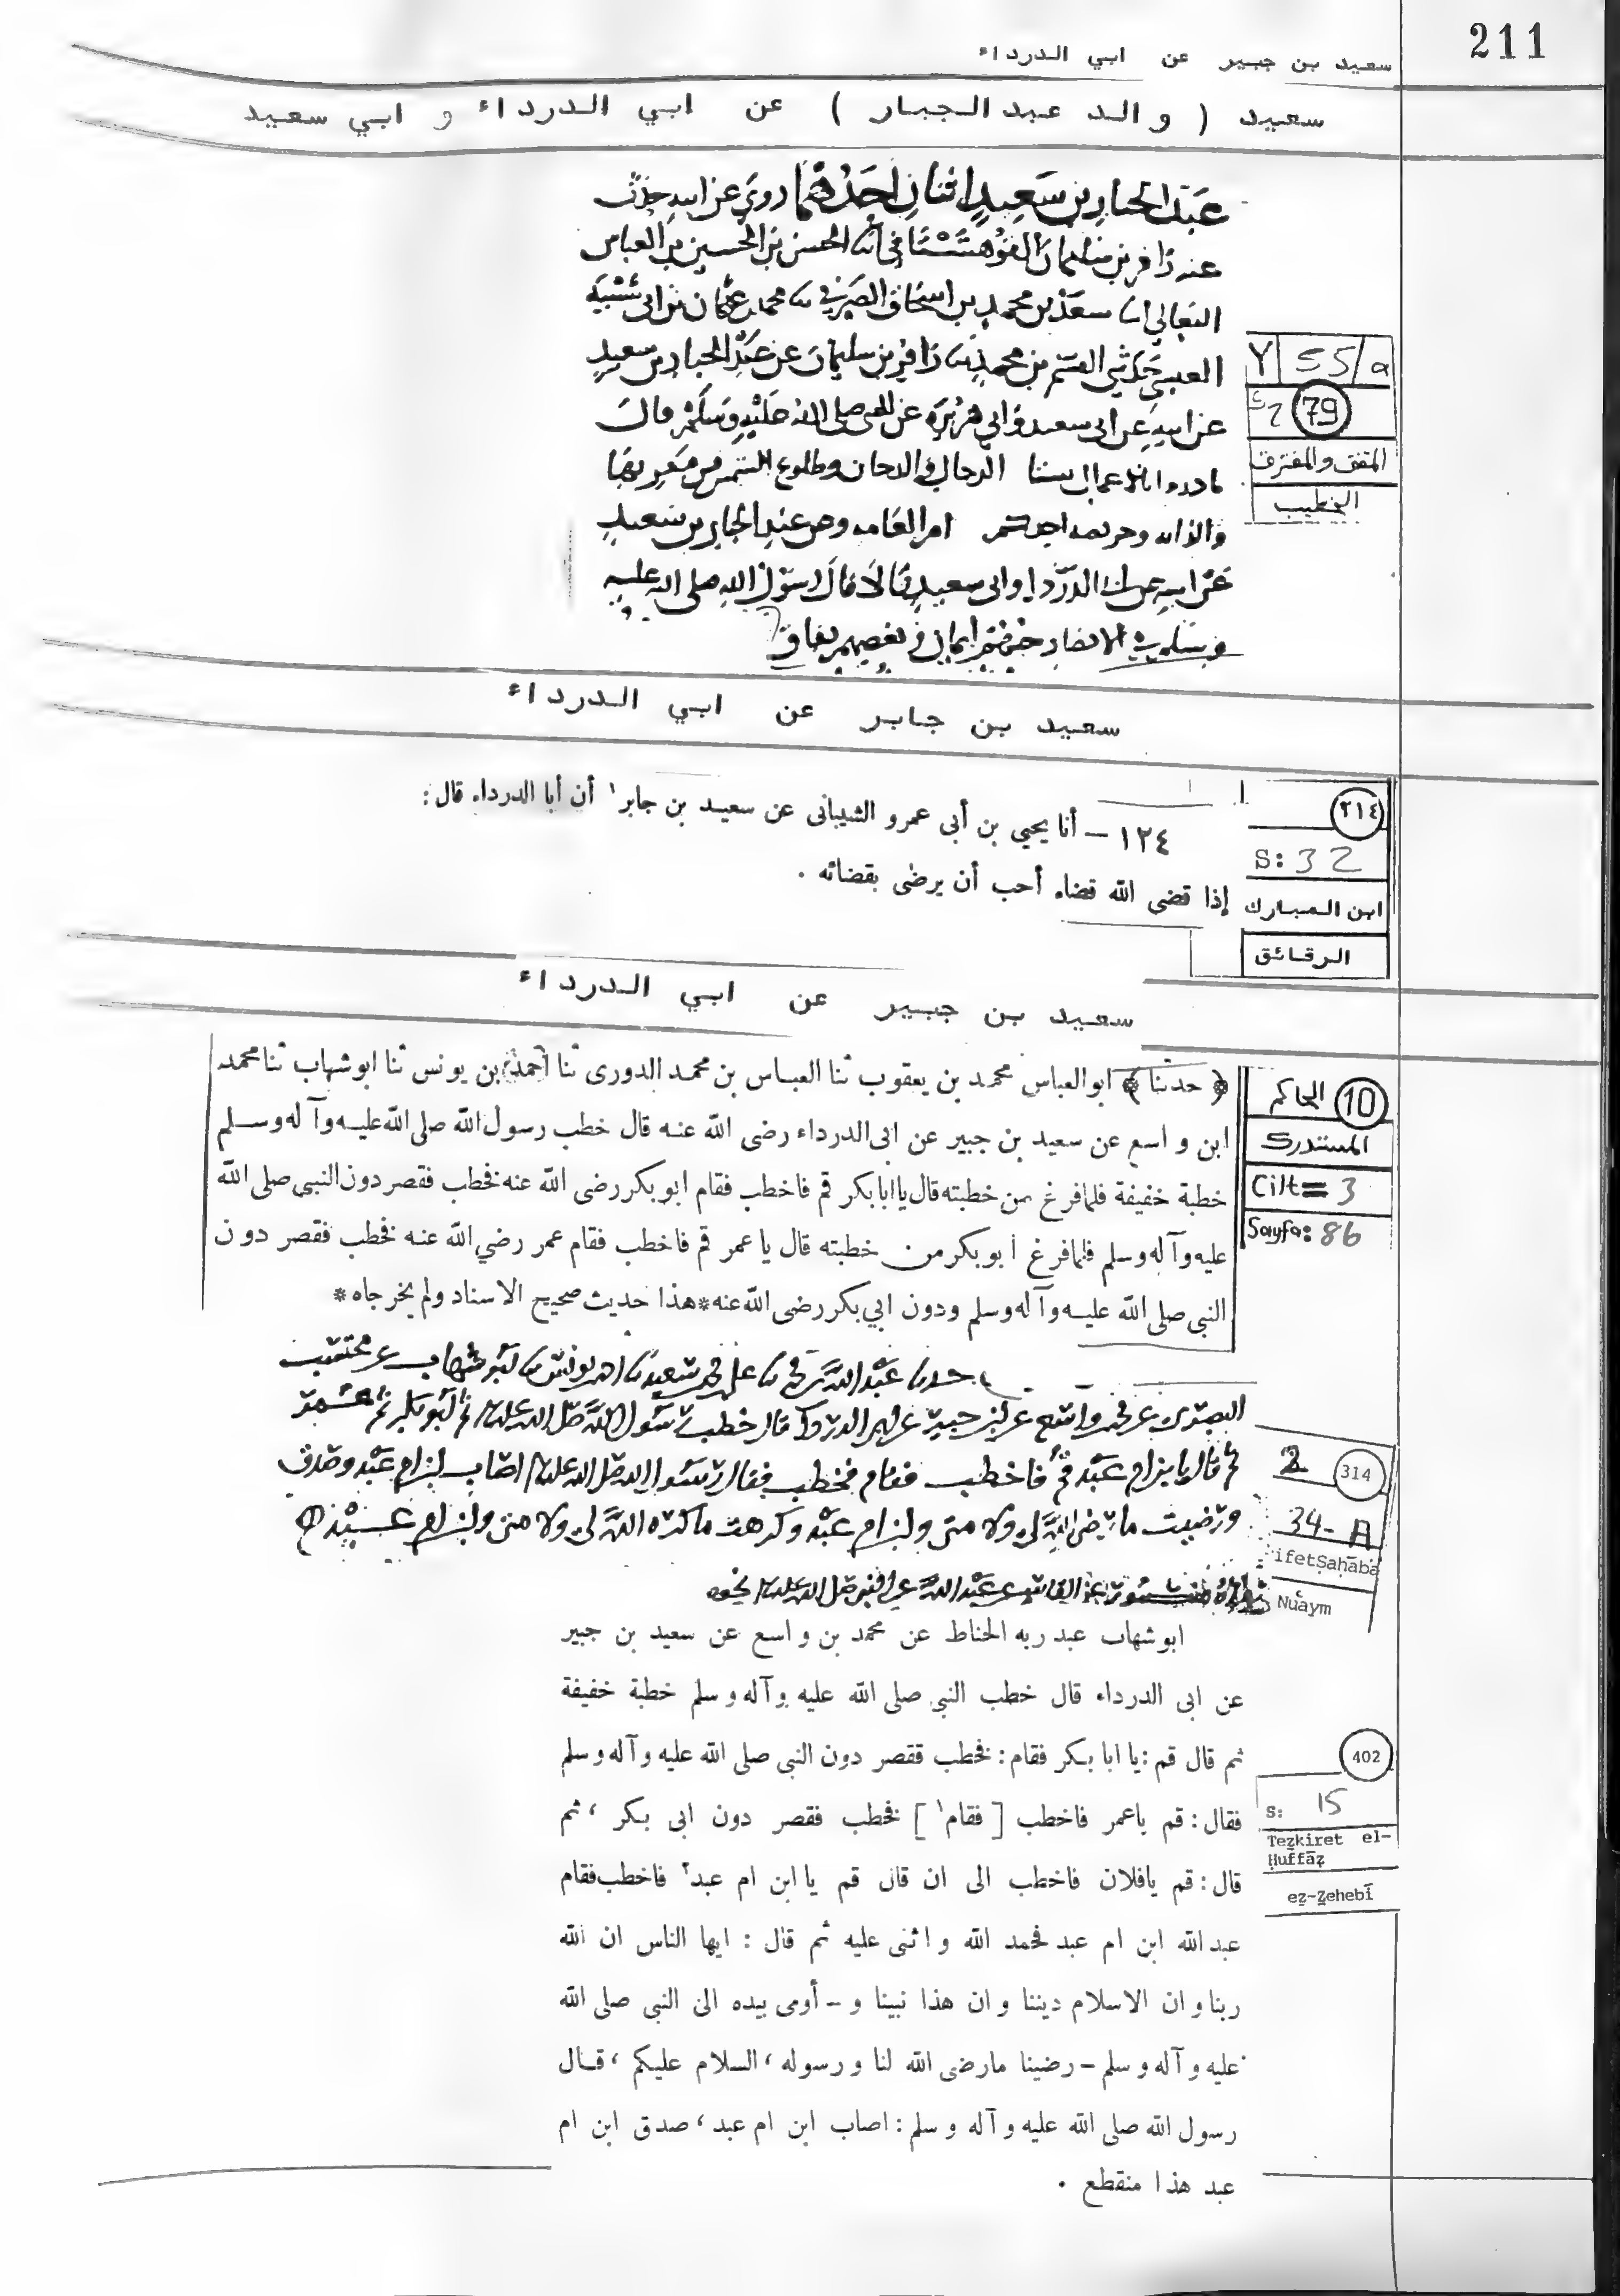 211
سعيد بن جبير عن ابي الدرداء
سعيد ( والد عبد الجبار ) عن ابي الدرداء و ابي سعيد
عبد الجبار بن سعيد اثنان احدهما روى عن ابيه حدث
عنه زافر بن سليمان القوهستاني انا الحسن بن الحسين بن العباس
النعالي انا سعد بن محمد بن اسحاق الصيرفي نا محمد بن عثمان بن ابي شيبة
العبسي حدثني القسم بن محمد نا زافر بن سليمان عن عبد الجبار بن سعيد
عن ابيه عن ابي سعيد وابي هريرة عن النبي صلى الله عليه وسلم قال
بادروا بالاعمال ستا الدجال والدخان وطلوع الشمس من مغربها
والدابة وخويصة احدكم امر العامة وعن عبد الجبار بن سعيد
عن ابيه عن ابي الدرداء وابي سعيد قالا قال رسول الله صلى الله عليه
وسلم حب الانصار ايمان وبغضهم نفاق
Y 55/a
79
المتفق والمفترق
الخطيب
سعيد بن جابر عن ابي الدرداء
١٢٤ – أنا يحيي بن أبى عمرو الشيبانى عن سعيد بن جابر١ أن أبا الدرداء قال:
إذا قضى الله قضاء أحب أن يرضى بقضائه .
٢١٤
S: 32
ابن المبارك
الرقائق
سعيد بن جبير عن ابي الدرداء
﴿ حدثنا ﴾ ابو العباس محمد بن يعقوب ثنا العباس بن محمد الدورى ثنا أحمد بن يونس ثنا ابو شهاب ثنا محمد
ابن و اسع عن سعيد بن جبير عن ابى الدرداء رضى الله عنه قال خطب رسول الله صلى الله عليه وآله وسلم
خطبة خفيفة فلما فرغ من خطبته قال يا ابا بكر قم فاخطب فقام ابو بكر رضى الله عنه فخطب فقصر دون النبى صلى الله
عليه وآله وسلم فلما فرغ ابو بكر من خطبته قال يا عمر قم فاخطب فقام عمر رضي الله عنه فخطب فقصر دون
النبى صلى الله عليه وآله وسلم ودون ابي بكر رضى الله عنه * هذا حديث صحيح الاسناد ولم يخرجاه *
10 الحاكم
المستدرك
Cilt= 3
Sayfa: 86
حدثنا عبد الله بن محمد نا علي بن سعيد نا احمد بن يونس نا ابو شهاب عن محتسب
البصري عن محمد بن واسع عن ابن جبير عن ابي الدرداء قال خطب رسول الله صلى الله عليه ثم ابو بكر ثم عمر
ثم قال يا ابن ام عبد قم فاخطب فقام فخطب فقال رسول الله صلى الله عليه اصاب ابن ام عبد وصدق
ورضيت ما رضي الله لي ولامتي وابن ام عبد وكرهت ما كره الله لي ولامتي وابن ام عبد
رواه منصور عن القاسم عن عبد الله عن النبي صلى الله عليه نحوه
2 314
34-A
ifetṢaḥāba
Nuʿaym
ابو شهاب عبد ربه الحناط عن محمد بن و اسع عن سعيد بن جبير
عن ابى الدرداء قال خطب النبى صلى الله عليه وآله وسلم خطبة خفيفة
ثم قال قم : يا ابا بكر فقام : فخطب فقصر دون النبى صلى الله عليه وآله وسلم
فقال : قم ياعمر فاخطب [ فقام١ ] فخطب فقصر دون ابى بكر ، ثم
قال : قم يافلان فاخطب الى ان قال قم يا ابن ام عبد٢ فاخطب فقام
عبد الله ابن ام عبد فحمد الله و اثنى عليه ثم قال : ايها الناس ان الله
ربنا و ان الاسلام ديننا و ان هذا نبينا و – أومى بيده الى النبى صلى الله
عليه وآله وسلم – رضينا مارضى الله لنا و رسوله ، السلام عليكم ، قال
رسول الله صلى الله عليه وآله وسلم : اصاب ابن ام عبد ، صدق ابن ام
عبد هذا منقطع .
402
S: 15
Teẕkiret el-
Ḥuffāẓ
eẕ-Ẕehebī